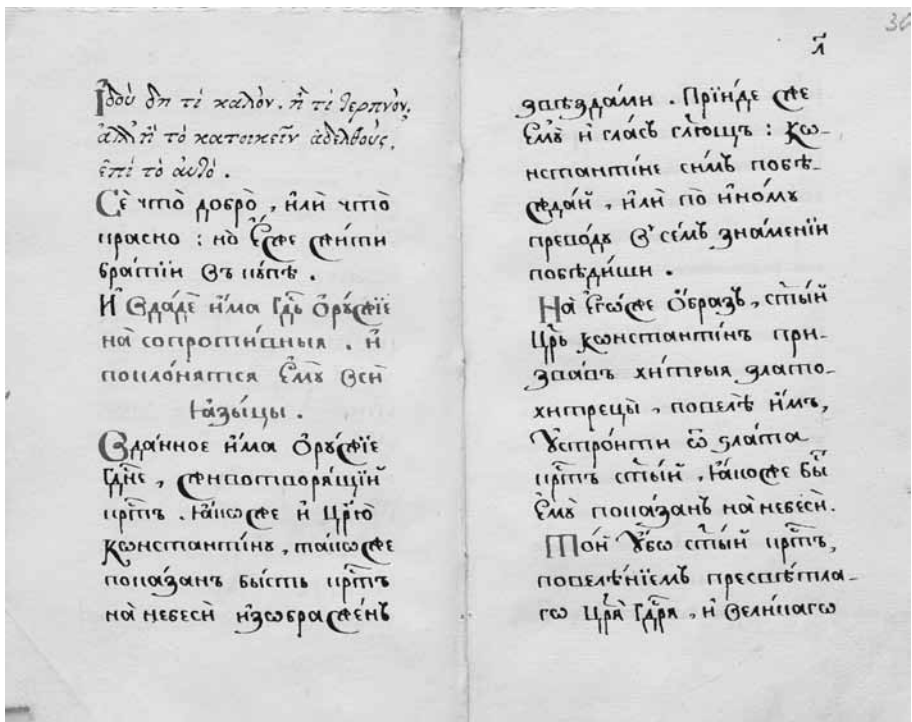 Ἰδοὺ δὴ τί καλὸν, ἢ τί τερπνὸν,
ἀλλ' ἢ τὸ κατοικεῖν ἀδελφοὺς,
ἐπὶ τὸ αὐτὸ.
Сѐ что̀ добро̀, и҆лѝ что̀
красно : но̀ Е҆же жи́ти
бра́тїи въ кꙋпѣ̀.
И҆ вдадѐ и҆́ма гдⷭ҇ь ѻ҆рꙋ́жїе
на̀ сопроти́вныѧ. и҆
поклонѧ́тсѧ Е҆мꙋ̀ всѝ
Ꙗ҆зы́цы.
Вда́нное и҆́ма ѻ҆рꙋ́жїе
гдⷭ҇не, животворѧ́щїй
крⷭ҇тъ. Ꙗ҆́кѡже и҆ цр҃ю̀
Кѡнстанті́нꙋ, та́кѡже
пока́занъ бы́сть крⷭ҇тъ
на̀ небесѝ и҆зѡбраже́нъ
л҃
30
ѕвѣзда́ми. Прїи́де же
Е҆мꙋ̀ и҆ гла́съ гл҃ющъ : Кѡ-
нстанті́не си́мъ побѣ-
жда́й, и҆лѝ по̀ и҆но́мꙋ
прево́дꙋ в̾ се́мъ зна́менїи
побѣди́ши.
На̀ Е҆гѡ́же ѻ҆́бразъ, ст҃ы́й
цр҃ь Кѡнстанті́нъ при-
зва́въ хи́трыѧ злато-
хитрецы̀, повелѣ̀ и҆̀мъ,
Ѹ҆стро́ити ѿ зла́та
крⷭ҇тъ ст҃ы́й, Ꙗ҆́коже бы̀
Е҆мꙋ̀ пока́занъ на̀ небесѝ.
То́й Ѹ҆́бѡ ст҃ы́й крⷭ҇тъ,
повелѣ́нїемъ пресвѣ́тла-
гѡ цр҃ѧ̀ гдⷭ҇рѧ, и҆ вели́кагѡ